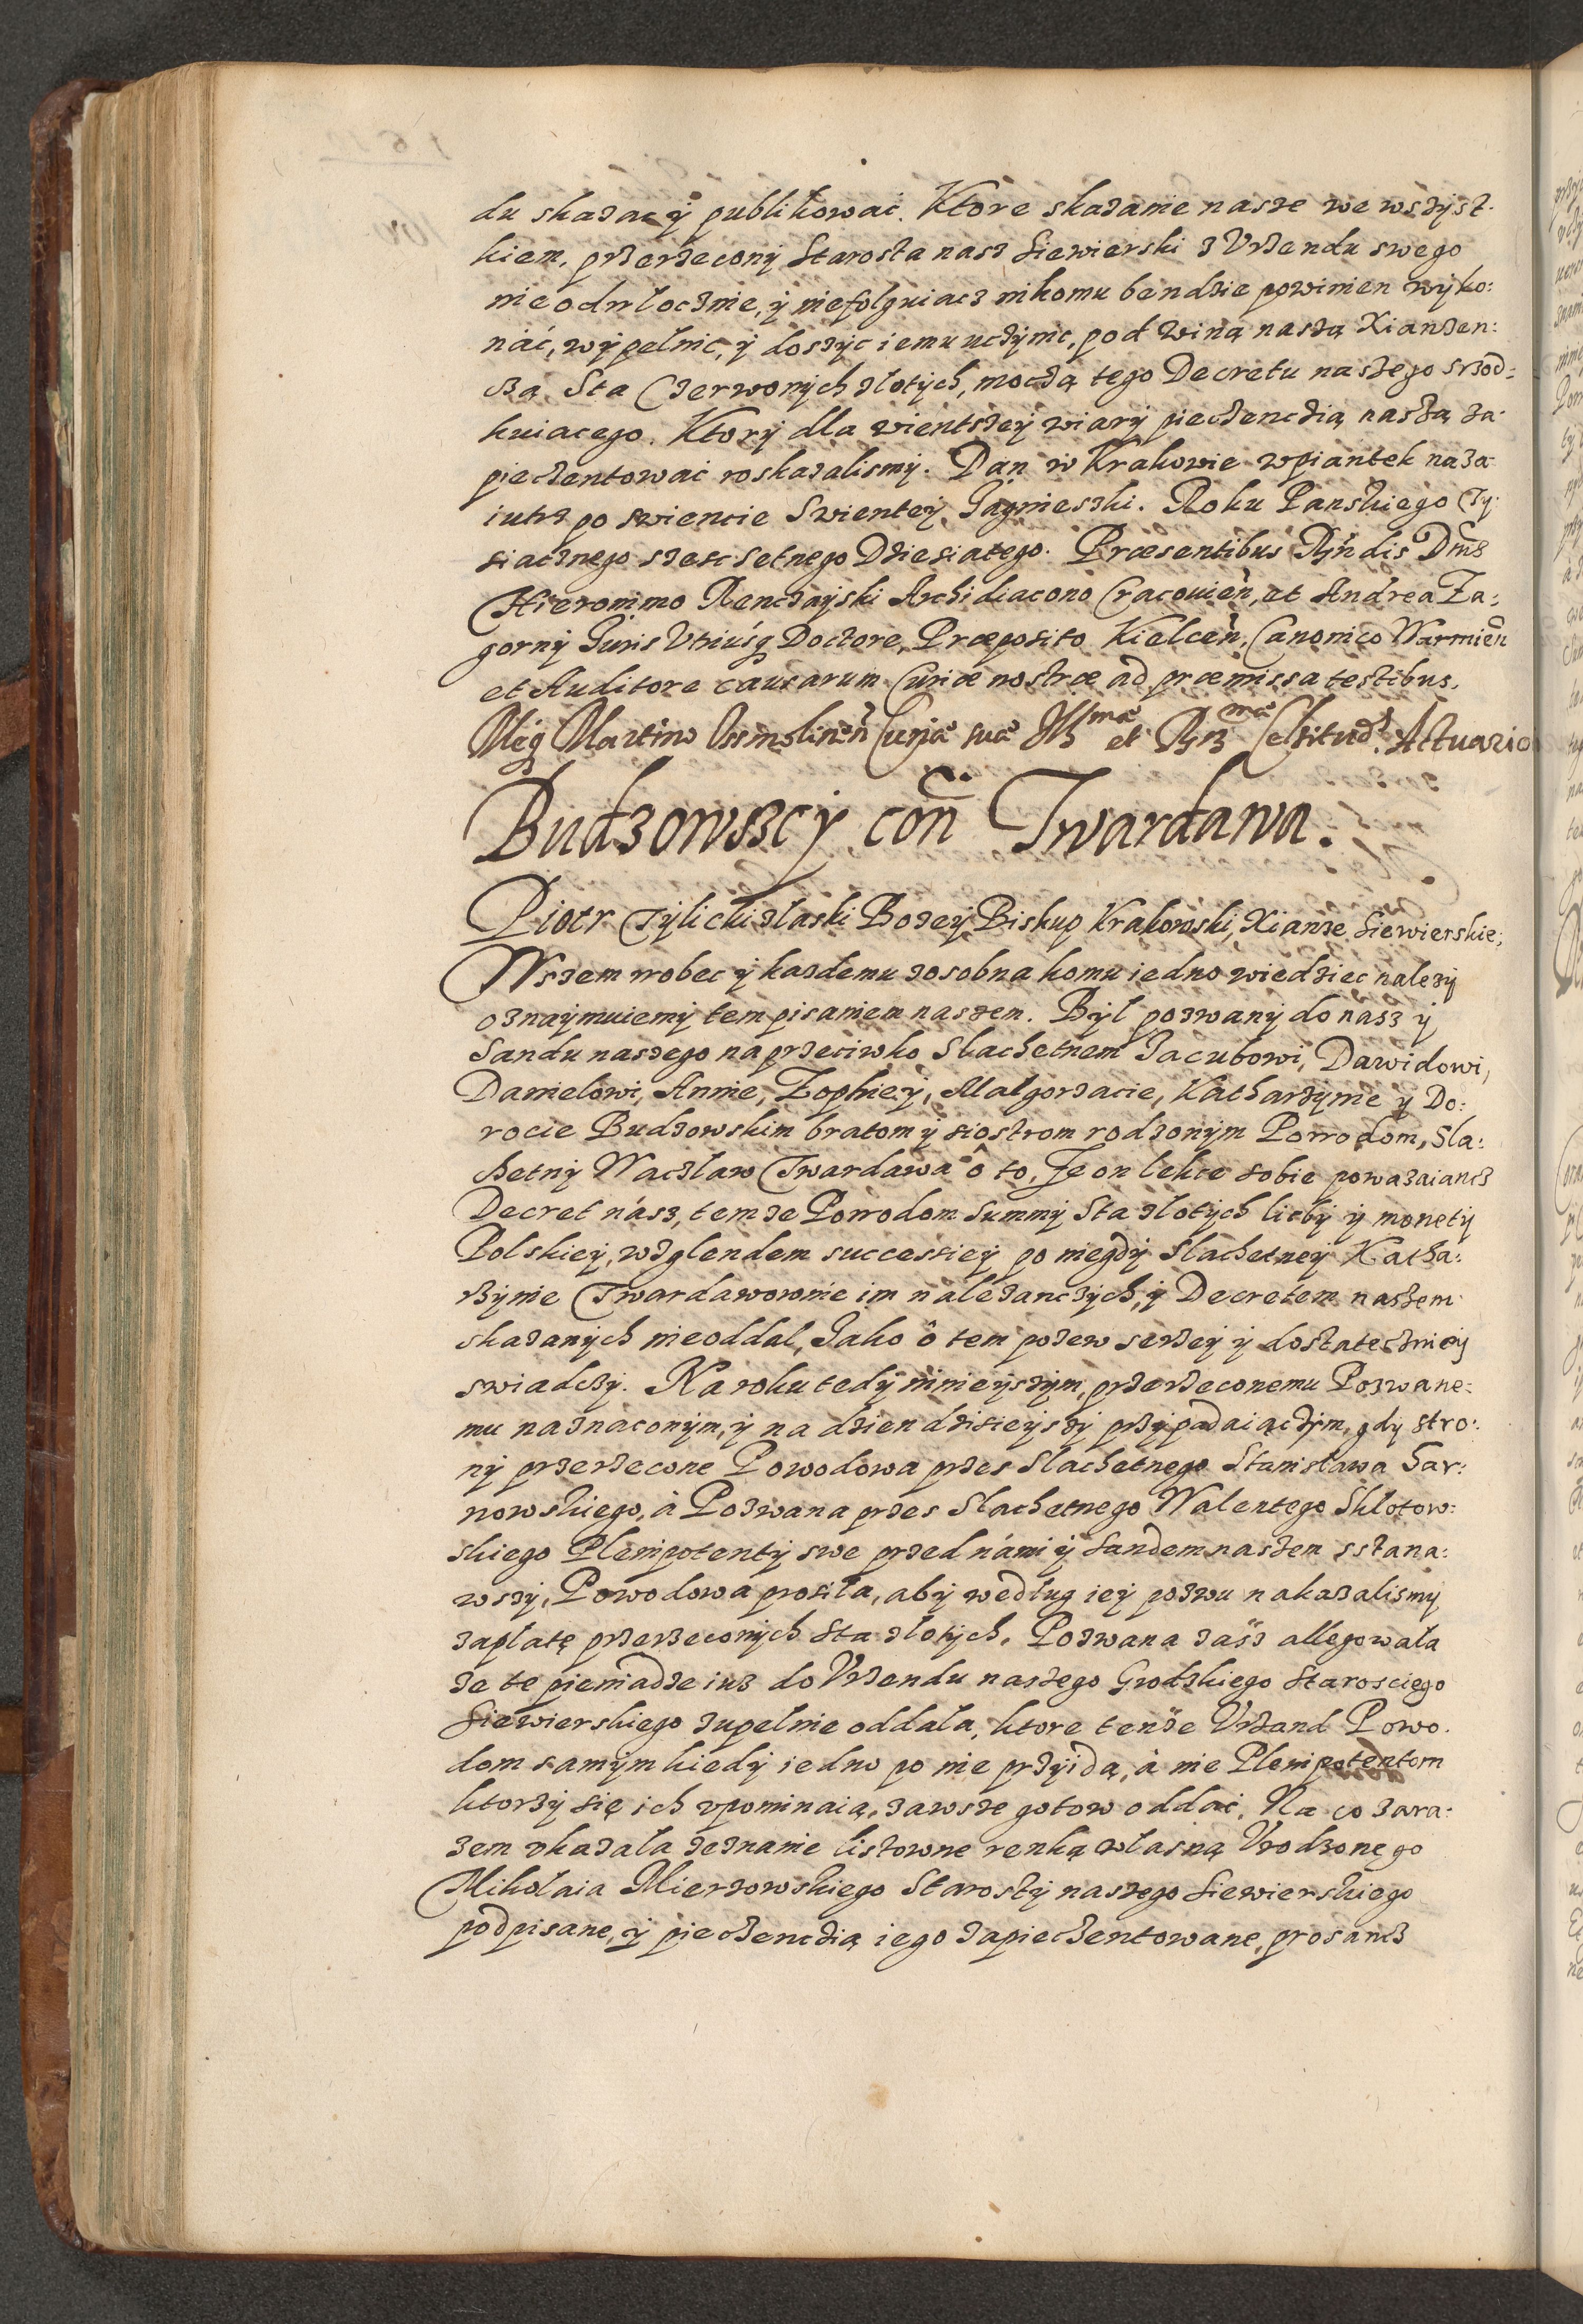 du skazac ÿ publikować. Ktore skazanie nasze we wszÿst-
kiem, przerzeconÿ Starosta nasz Siewierski z Vrzendu swego
nieodwłocznie, ÿ niefolguiacz nikomu bendzie powinien wÿko:
náć, wÿpełnic, ÿ doszÿc iemu uczÿnic, pod winą naszą Xianzen:
czą Sta Czerwonÿch złotÿch, moczą tego Decretu naszego srzod:
kuiacego. Ktorÿ dla wientszeÿ wiarÿ pieczenczią naszą za-
pieczentować roskazalismÿ. Dan w Krakowie wpiantek naza-
iutrz po swiencie Swienteÿ Jagnieszki. Roku Panskiego Tÿ-
siacznego szescsetnego Dziesiatego. Præsentibus Rndis Dnis
Hieronimo Renczaÿski Archidiacono Cracouień, et Andrea Za:
gornÿ Juris Vtriúsq Doctore, Præposito Kielceń, Canonico Warmień
et Auditore causarum Curiæ nostræ ad præmissa testibus.
Meg Martino Osmolineń Curiæ suæ Ill<sup>mæ</sup> et R<sup>mæ</sup> Celsitud<sup>s</sup>. Actuario
Budzowszcÿ coñ Twardawa.
Piotr Tÿlicki złaski Bozeÿ Biskup Krakowski, Xianze Siewierskie;
Wszem wobec ÿ kazdemu zosobna komu iedno wiedziec nalezÿ
oznaÿmuiemÿ tem pisaniem naszem. Bÿl pozwanÿ do nasz ÿ
Sandu naszego naprzeciwko Slachetnem Jacubowi, Dawidowi,
Danielowi, Annie, Zophieÿ, Malgorzacie, Katharzÿnie ÿ Do:
rocie Budzowskim bratom ÿ siostrom rodzonÿm Powodom, Sla:
chetnÿ Waczlaw Twardawa ô to, Ze on lekce sobie powazaiancz
Decret nász, temze Powodom Summÿ Sta złotÿch liczbÿ ÿ monetÿ
Polskieÿ, wzglendem successieÿ po niegdÿ Slachetneÿ Katha:
rzÿnie Twardawownie im nalezanczÿch, ÿ Decretem naszem
skazanÿch nieoddal, Jako ô tem pozew serzeÿ ÿ dostatecznieÿ
swiadczÿ. Na roku tedÿ ninieÿszÿm, przerzeconemu Pozwane:
mu naznaconÿm, ÿ na dzien dzisieÿszÿ przÿpadaiączÿm, gdy stro:
nÿ przerzecone Powodowa przes Slachetnego Stanisława Sar:
nowskiego, à Pozwana przes Slachetnego Walentego Skłotow:
skiego Plenipotentÿ swe przed námi ÿ Sandem naszem sstana:
wszÿ, Powodowa prosiła, abÿ według ieÿ pozwu nakazalismÿ
zapłatę przerzeconÿch Sta złotÿch. Pozwana zasz allegowała
ze te pieniadze iuz do Vrzendu naszego Grodzkiego Starosciego
Siewierskiego zupełnie oddała, ktore tenze Vrzand Powo-
dom samÿm kiedÿ iedno po nie przÿidą, à nie Plenipotentom
ktorzÿ się ich vpominaią, zawsze gotow oddać. Na co zara:
zem vkazała zeznanie listowne renką własną Vrodzonego
Mikołaia Mierzowskiego Starostÿ naszego Siewierskiego
podpisane, ÿ pieczenczią iego zapieczentowane, prosancz